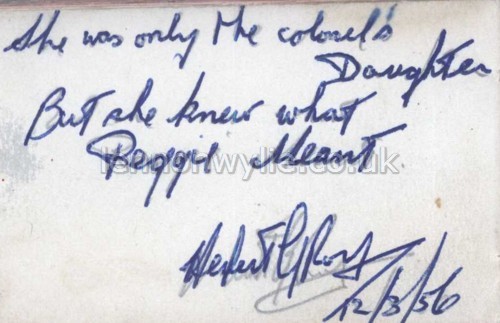 She was only the colonel's
Daughter
But she knew what
Reggie Meant
lennonwylie.co.uk
12/3/56